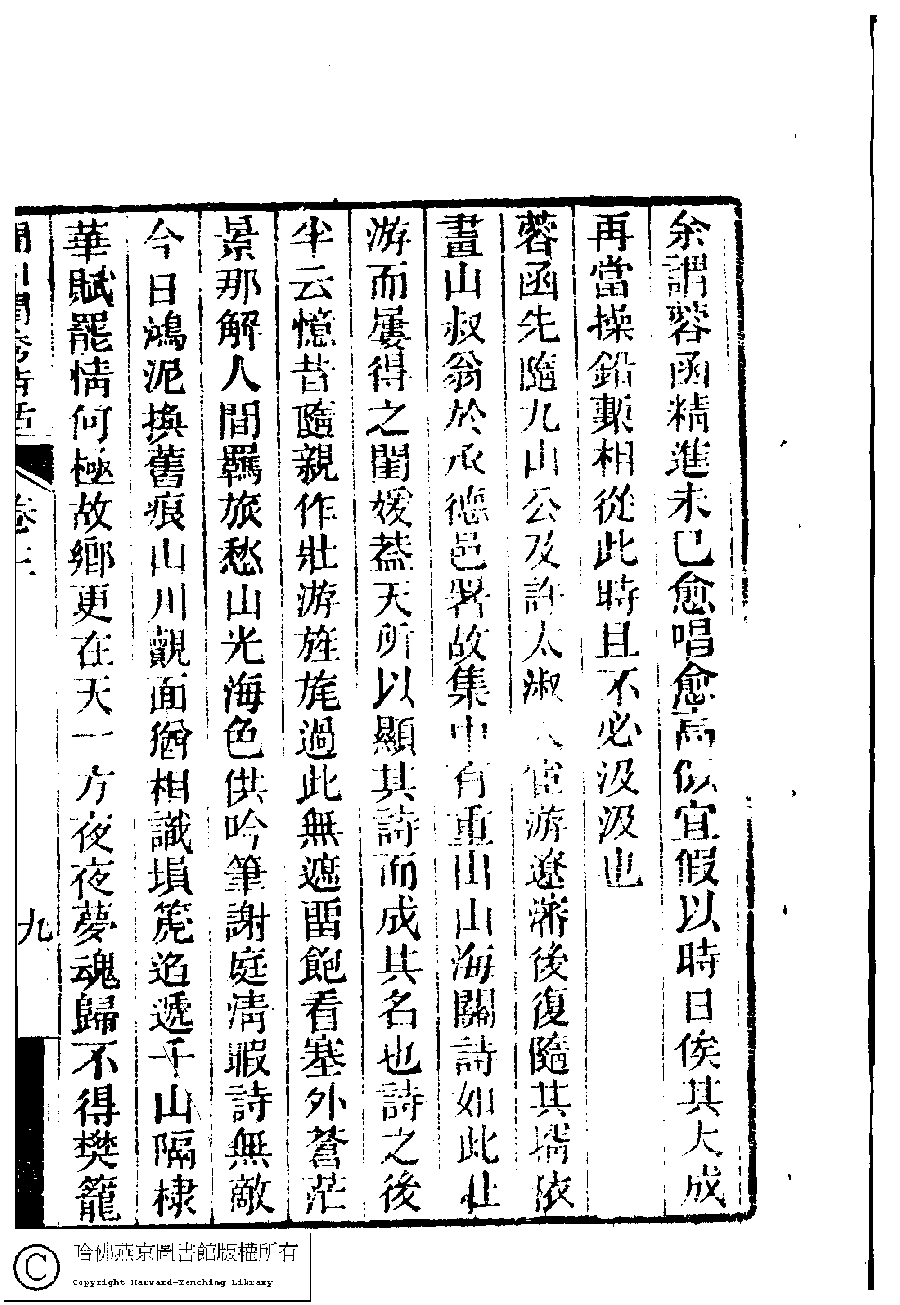 余謂蓉函精進未已愈唱愈高似宜假以時日俟其大成
再當操鉛槧相從此時且不必汲汲也
蓉函先隨九山公及許太淑人宦游遼瀋後復隨其壻依
畫山叔翁於承德邑署故集中有重出山海關詩如此壯
游而屢得之閨媛葢天所以顯其詩而成其名也詩之後
半云憶昔隨親作壯游旌旄過此無遮畱飽看塞外蒼茫
景那解人間羈旅愁山光海色供吟筆謝庭清暇詩無敵
今日鴻泥換舊痕山川覿面猶相識塤篪迢遞千山隔棣
華賦罷情何極故鄉更在天一方夜夜夢魂歸不得樊籠
閩川閨秀詩話 卷三 九
哈佛燕京圖書館版權所有
Copyright Harvard-Yenching Library